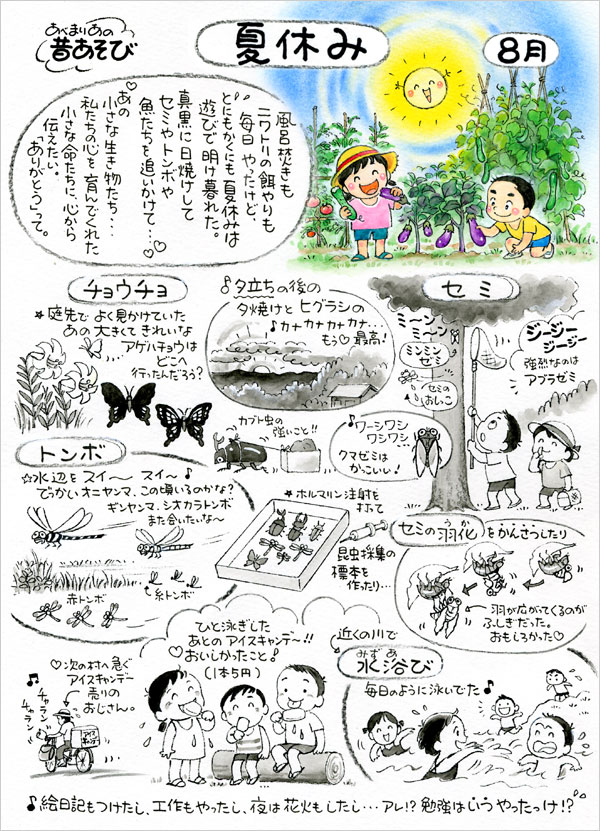 あべまりあの
昔あそび
夏休み
8月
風呂焚きも
ニワトリの餌やりも
毎日 やったけど
ともかくにも夏休みは
遊びで明け暮れた。
真黒に日焼けして
セミやトンボや
魚たちを追いかけて…♡
あの
小さな生き物たち…
私たちの心を育んでくれた
小さな命たちに、心から
伝えたい。
「ありがとう」って。
チョウチョ
★庭先で よく見かけていた
あの大きくてきれいな
アゲハチョウは
どこへ
行ったんだろう?
♪夕立ちの後の
夕焼けとヒグラシの
♪カナカナカナカナ…
もう♡最高!
セミ
ミーンミーンミーン
ミンミン
ゼミ
セミの
おしっこ
ジージー
ジージー
強烈なのは
アブラゼミ
カブト虫の
強いこと!!
♪ワーシワシ
ワシワシ…
クマゼミは
かっこいい!
トンボ
☆水辺をスイ〜 スイ〜♪
でっかいオニヤンマ、この頃いるのかな?
ギンヤンマ、シオカラトンボ
また会いたいな〜
赤トンボ
糸トンボ
★ホルマリン注射を
打って
昆虫採集の
標本を
作ったり…
セミの羽化をかんさつしたり
うか
羽が広がってくるのが
ふしぎだった。
おもしろかった♡
ひと泳ぎした
あとのアイスキャンデー!!
♡おいしかったこと!
(1本5円)
♡次の村へ急ぐ
アイスキャンデー
売りの
おじさん。
チャラン
チャラン
アイス
キャンデー
近くの川で
みずあ
水浴び
毎日のように泳いでた♪
♪絵日記もつけたし、工作もやったし、夜は花火もしたし…アレ!?勉強はいつやったっけ!?